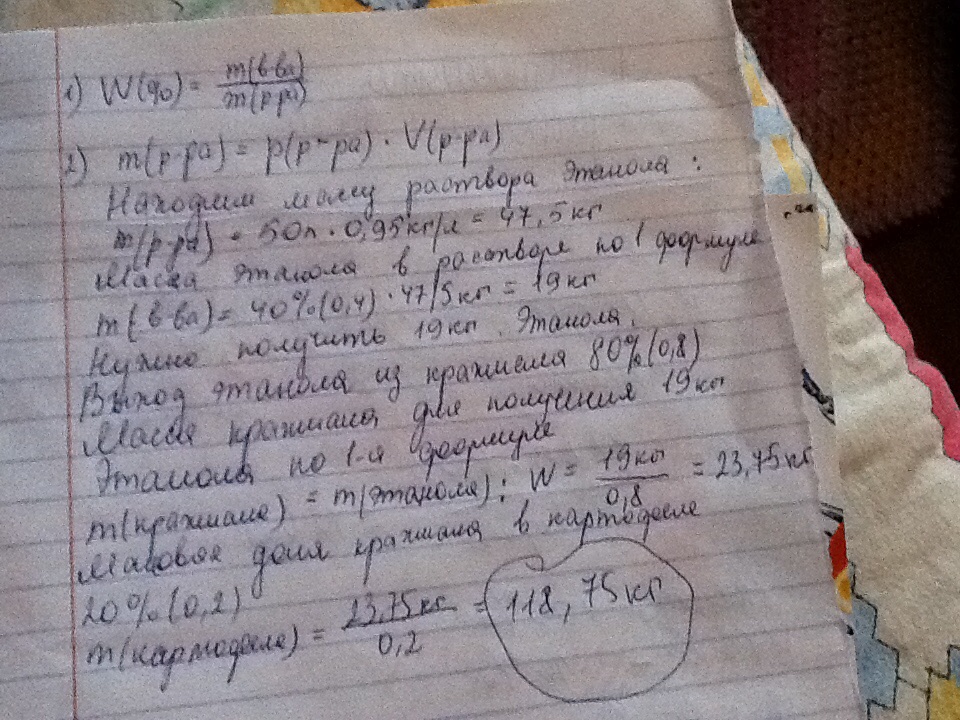 1) W(%) = m(в-ва) / m(р-ра)
2) m(р-ра) = p(р-ра) · V(р-ра)
Находим массу раствора этанола :
m(р-ра) = 50л · 0,95кг/л = 47,5кг
Масса этанола в растворе по 1 формуле
m(в-ва) = 40%(0,4) · 47,5кг = 19кг
Нужно получить 19кг этанола.
Выход этанола из крахмала 80%(0,8)
Масса крахмала для получения 19кг
Этанола по 1-й формуле
m(крахмала) = m(этанола) : W = 19кг / 0,8 = 23,75кг
Массовая доля крахмала в картофеле
20%(0,2)
m(картофеля) = 23,75кг / 0,2 = 118,75кг